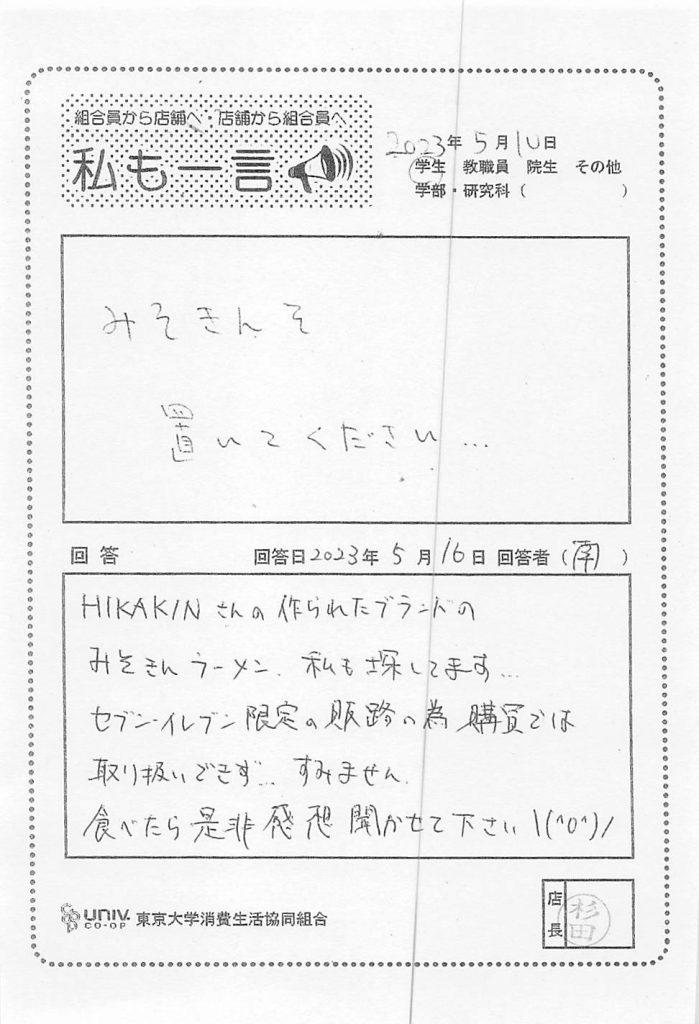 組合員から店舗へ・店舗から組合員へ
私も一言
2023年 5月10日
学生 教職員 院生 その他
学部・研究科( )
みそきんそ
置いてください…
回答 回答日2023年 5月16日 回答者(南)
HIKAKINさんの作られたブランドの
みそきんラーメン、私も探してます…
セブン-イレブン限定の販路の為購買では
取り扱いできず… すみません。
食べたら是非感想聞かせて下さい\(^o^)/
店長
杉田
UNIV. CO-OP 東京大学消費生活協同組合